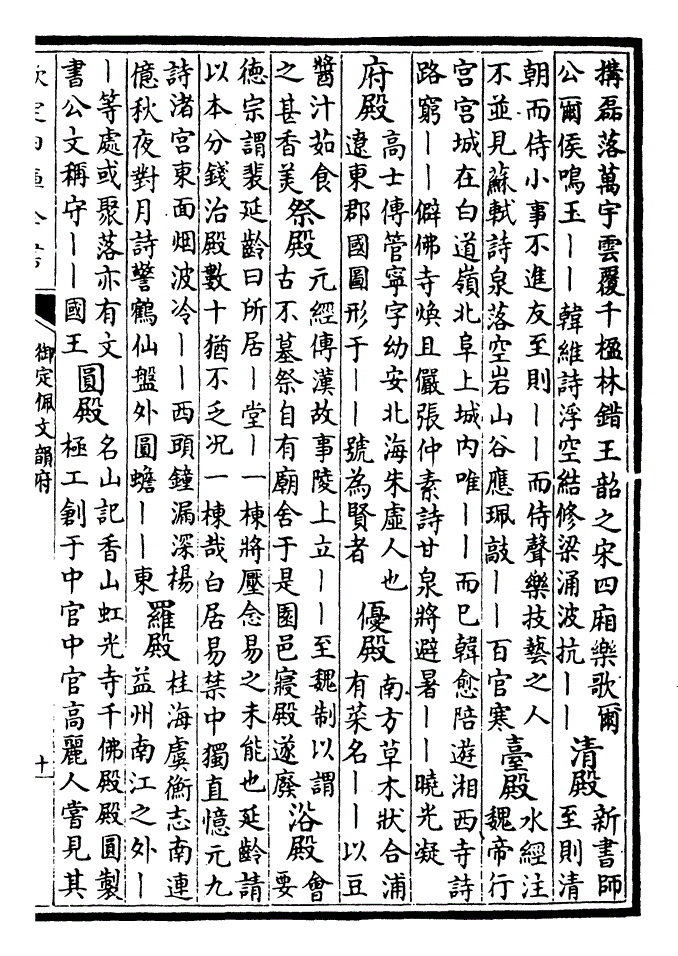 搆磊落萬宇雲覆千楹林錯王韶之宋四廂樂歌爾
公爾侯鳴玉丨丨韓維詩浮空結修梁涌波抗丨丨
清殿
新書師
至則清
朝而侍小事不進友至則丨丨而侍聲樂技藝之人
不並見蘇軾詩泉落空岩山谷應珮敲丨丨百官寒
臺殿
水經注
魏帝行
宮宮城在白道嶺北阜上城内唯丨丨而已韓愈陪遊湘西寺詩
路窮丨丨僻佛寺煥且儼張仲素詩甘泉將避暑丨丨曉光凝
府殿
高士傳管寧字幼安北海朱虛人也
遼東郡國圖形于丨丨號為賢者
優殿
南方草木狀合浦
有菜名丨丨以豆
醬汁茹食
之甚香美
祭殿
元經傳漢故事陵上立丨丨至魏制以謂
古不墓祭自有廟舍于是園邑寢殿遂廢
浴殿
會
要
德宗謂裴延齡曰所居丨堂丨一棟將壓念易之未能也延齡請
以本分錢治殿數十猶不乏况一棟哉白居易禁中獨直憶元九
詩渚宮東面烟波冷丨丨西頭鐘漏深楊
億秋夜對月詩警鶴仙盤外圓蟾丨丨東
羅殿
桂海虞衡志南連
益州南江之外丨
丨等處或聚落亦有文
書公文稱守丨丨國王
圓殿
名山記香山虹光寺千佛殿殿圓製
極工創于中官中官高麗人嘗見其
御定佩文韻府